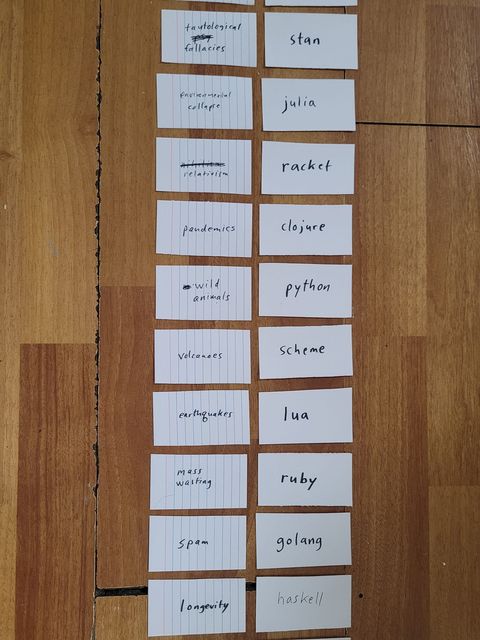 tautological
fallacies
stan
environmental
collapse
julia
relativism
racket
pandemics
clojure
wild
animals
python
volcanoes
scheme
earthquakes
lua
mass
wasting
ruby
spam
golang
longevity
haskell